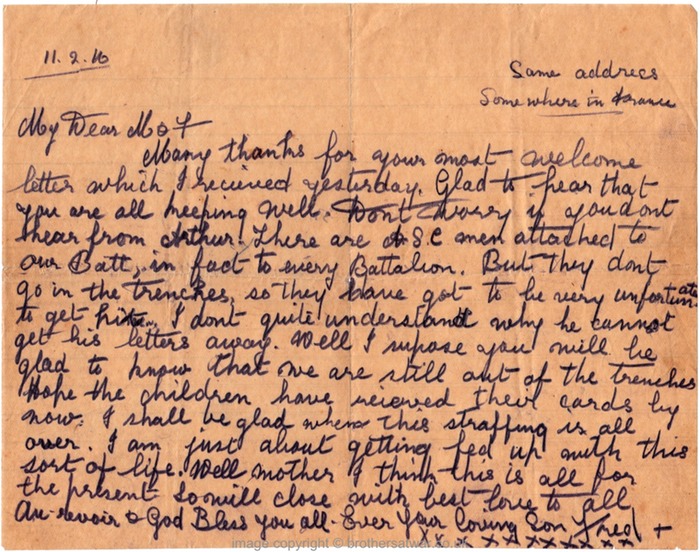 11.2.16
Same address
Somewhere in France
My Dear M & F
Many thanks for your most welcome
letter which I recieved yesterday. Glad to hear that
you are all keeping well. Dont worry if you dont
hear from Arthur. There are A.S.C men attached to
our Batt, in fact to every Battalion. But they dont
go in the trenches, so they have got to be very unfortunate
to get hit. I dont quite understand why he cannot
get his letters away. Well I supose you will be
glad to know that we are still out of the trenches
Hope the children have reieved their cards by
now. I shall be glad when this straffing is all
over. I am just about getting fed up with this
sort of life. Well mother I think this is all for
the present so will close with best love to all
Au-revoir & God Bless you all. Ever Your loving Son Fred +
x x x x x x x x x
image copyright © brothersatwar.co.uk